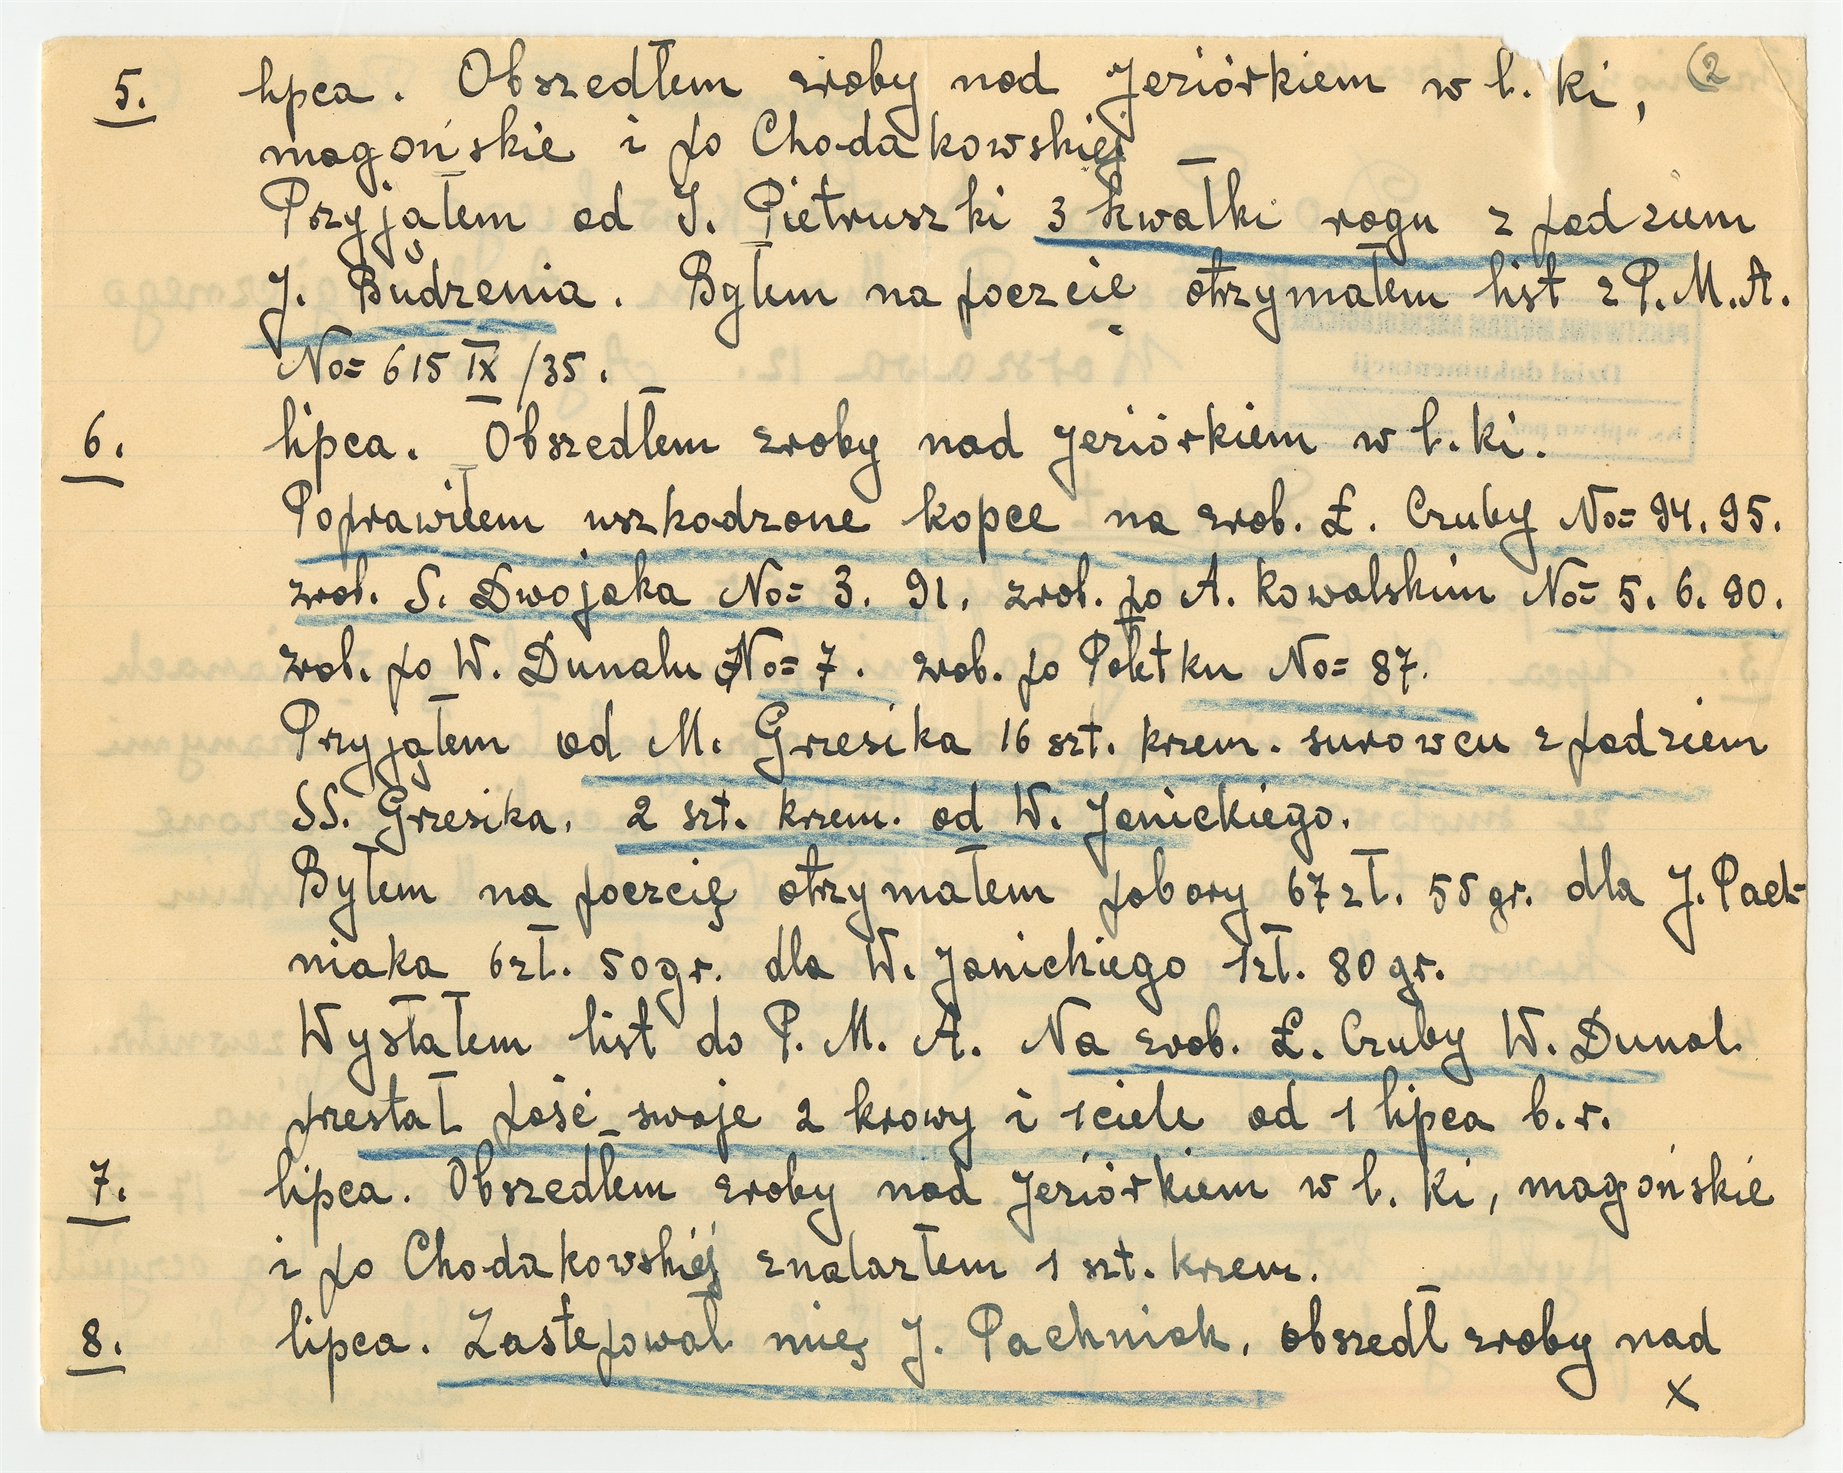 (2
5. lipca. Obszedłem zroby nad Jeziórkiem w l. ki,
magońskie i po Chodakowskiej
Przyjąłem od I. Pietruszki 3 kwałki rogu z pod ziem
J. Budzenia. Byłem na poczcie otrzymałem list z P.M.A.
No= 615 IX /35.
6. lipca. Obszedłem zroby nad Jeziórkiem w l. ki.
Poprawiłem uszkodzone kopce na zrob. Ł. Czuby No= 94. 95.
zrob. S. Dwojaka No= 3. 91. zrob. po A. Kowalskim No= 5. 6. 90.
zrob. po W. Dunalu No= 7. zrob. po Połetku No= 87.
Przyjąłem od M. Grzesika 16 szt. krzem. surowcu z pod ziem
SS. Grzesika. 2 szt. krzem. od W. Janickiego.
Byłem na poczcię otrzymałem pobory 67 zł. 55 gr. dla J. Pach-
niaka 6 zł. 50 gr. dla W. Janickiego 1 zł. 80 gr.
Wysłałem list do P. M. A. Na zrob. Ł. Czuby W. Dunal
przestał paść swoje 2 krowy i 1 ciele od 1 lipca b. r.
7. lipca. Obszedłem zroby nad Jeziórkiem w l. ki, magońskie
i po Chodakowskiej znalazłem 1 szt. krzem.
8. lipca. Zastępował mię J. Pachniak, obszedł zroby nad
x